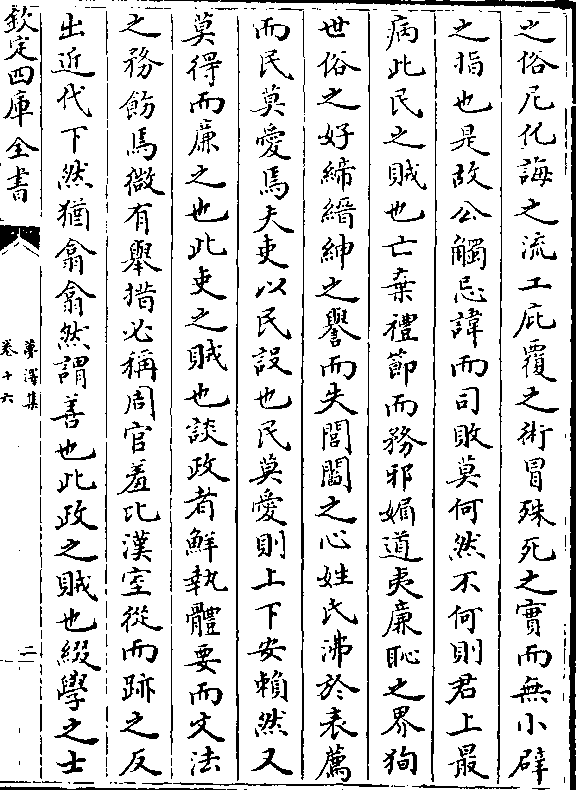 之俗凡化誨之流工庇覆之術冒殊死之實而無小辟
之指也是故公觸忌諱而司敗莫何然不何則君上最
病此民之賊也亡棄禮節而務邪媚道夷廉恥之界狥
世俗之好締縉紳之譽而失閭閻之心姓氏沸於表薦
而民莫愛焉夫吏以民設也民莫愛則上下安賴然又
莫得而廉之也此吏之賊也談政者鮮執體要而文法
之務飭焉微有舉措必稱周官羞比漢室從而跡之反
出近代下然猶翕翕然謂善也此政之賊也綴學之士
欽定四庫全書
夢澤集
卷十六
二